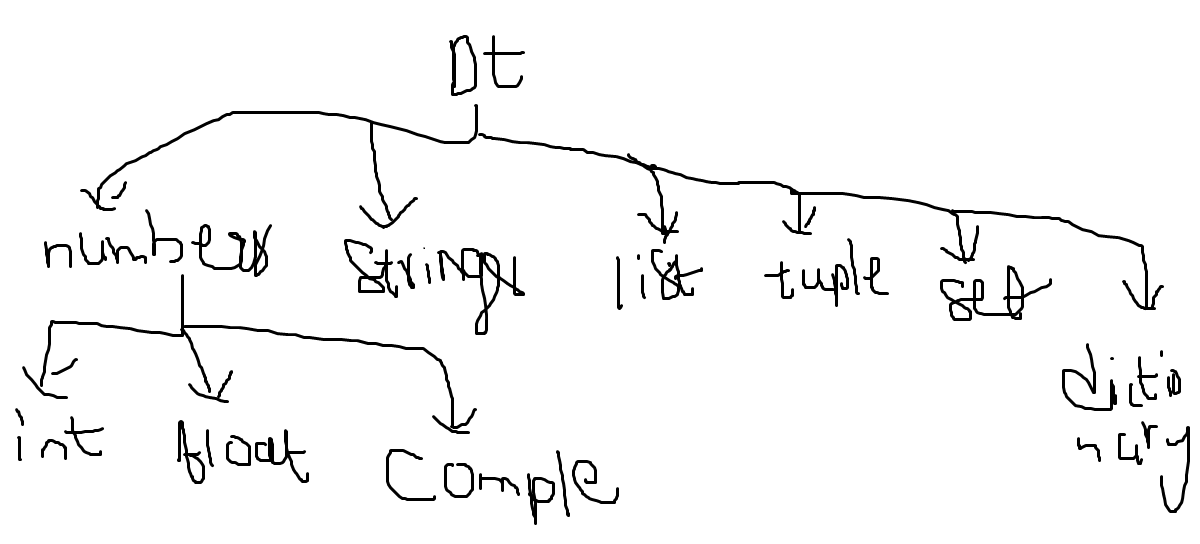 Dt
numbers
Strings
list
tuple
set
dictio
nary
int
float
Comple